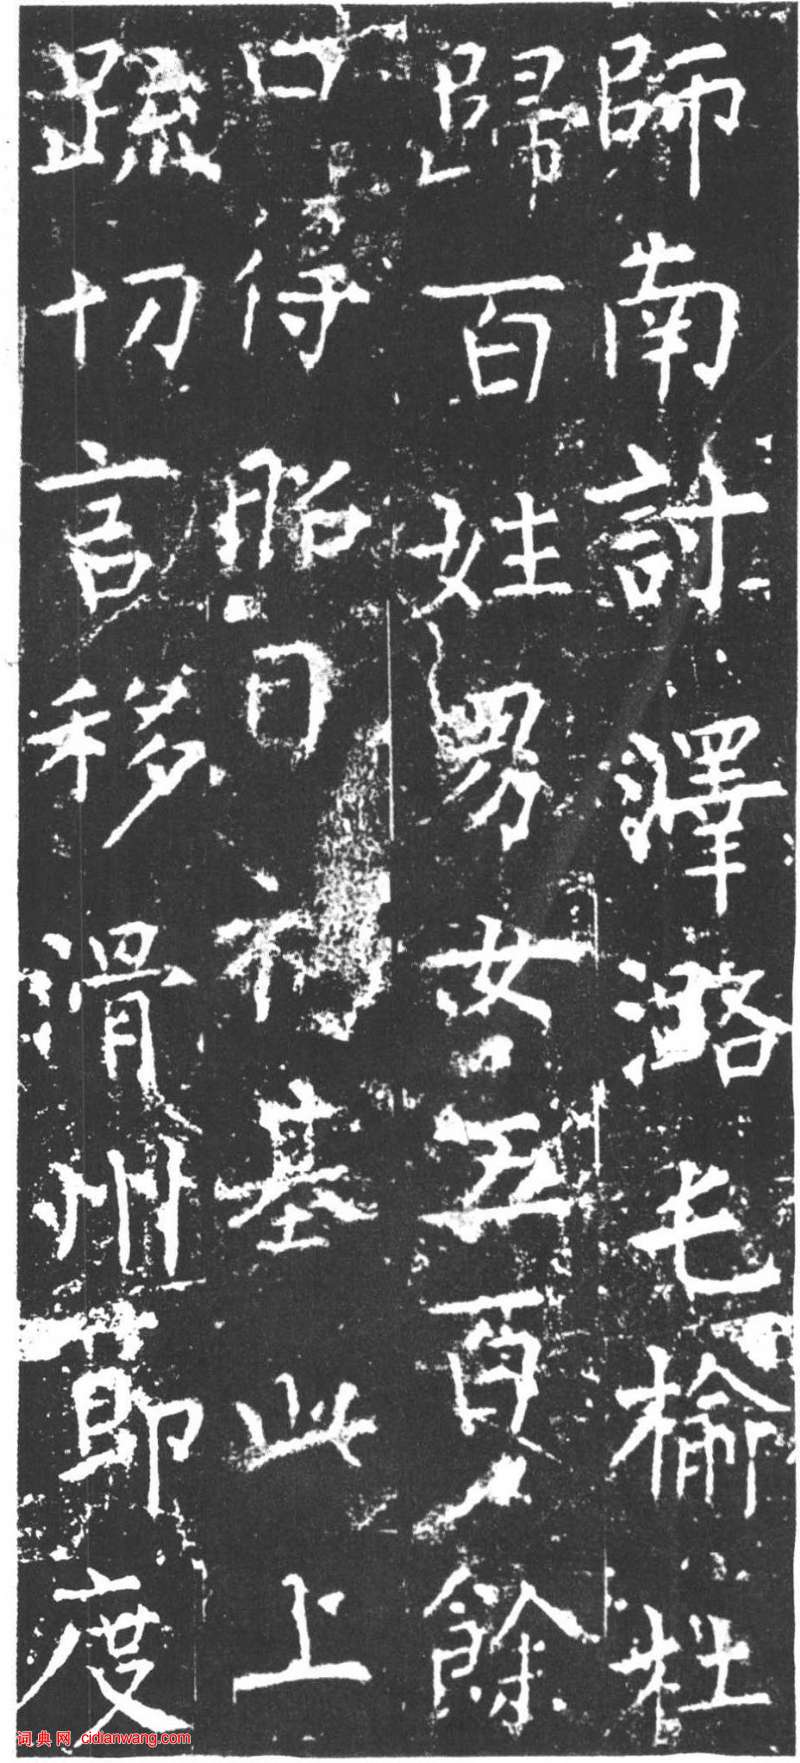 師南討澤潞毛榆社
歸百姓男女五百餘
口得昭日初基此上
疏切言移滑州節度
词典网 cidianwang.com